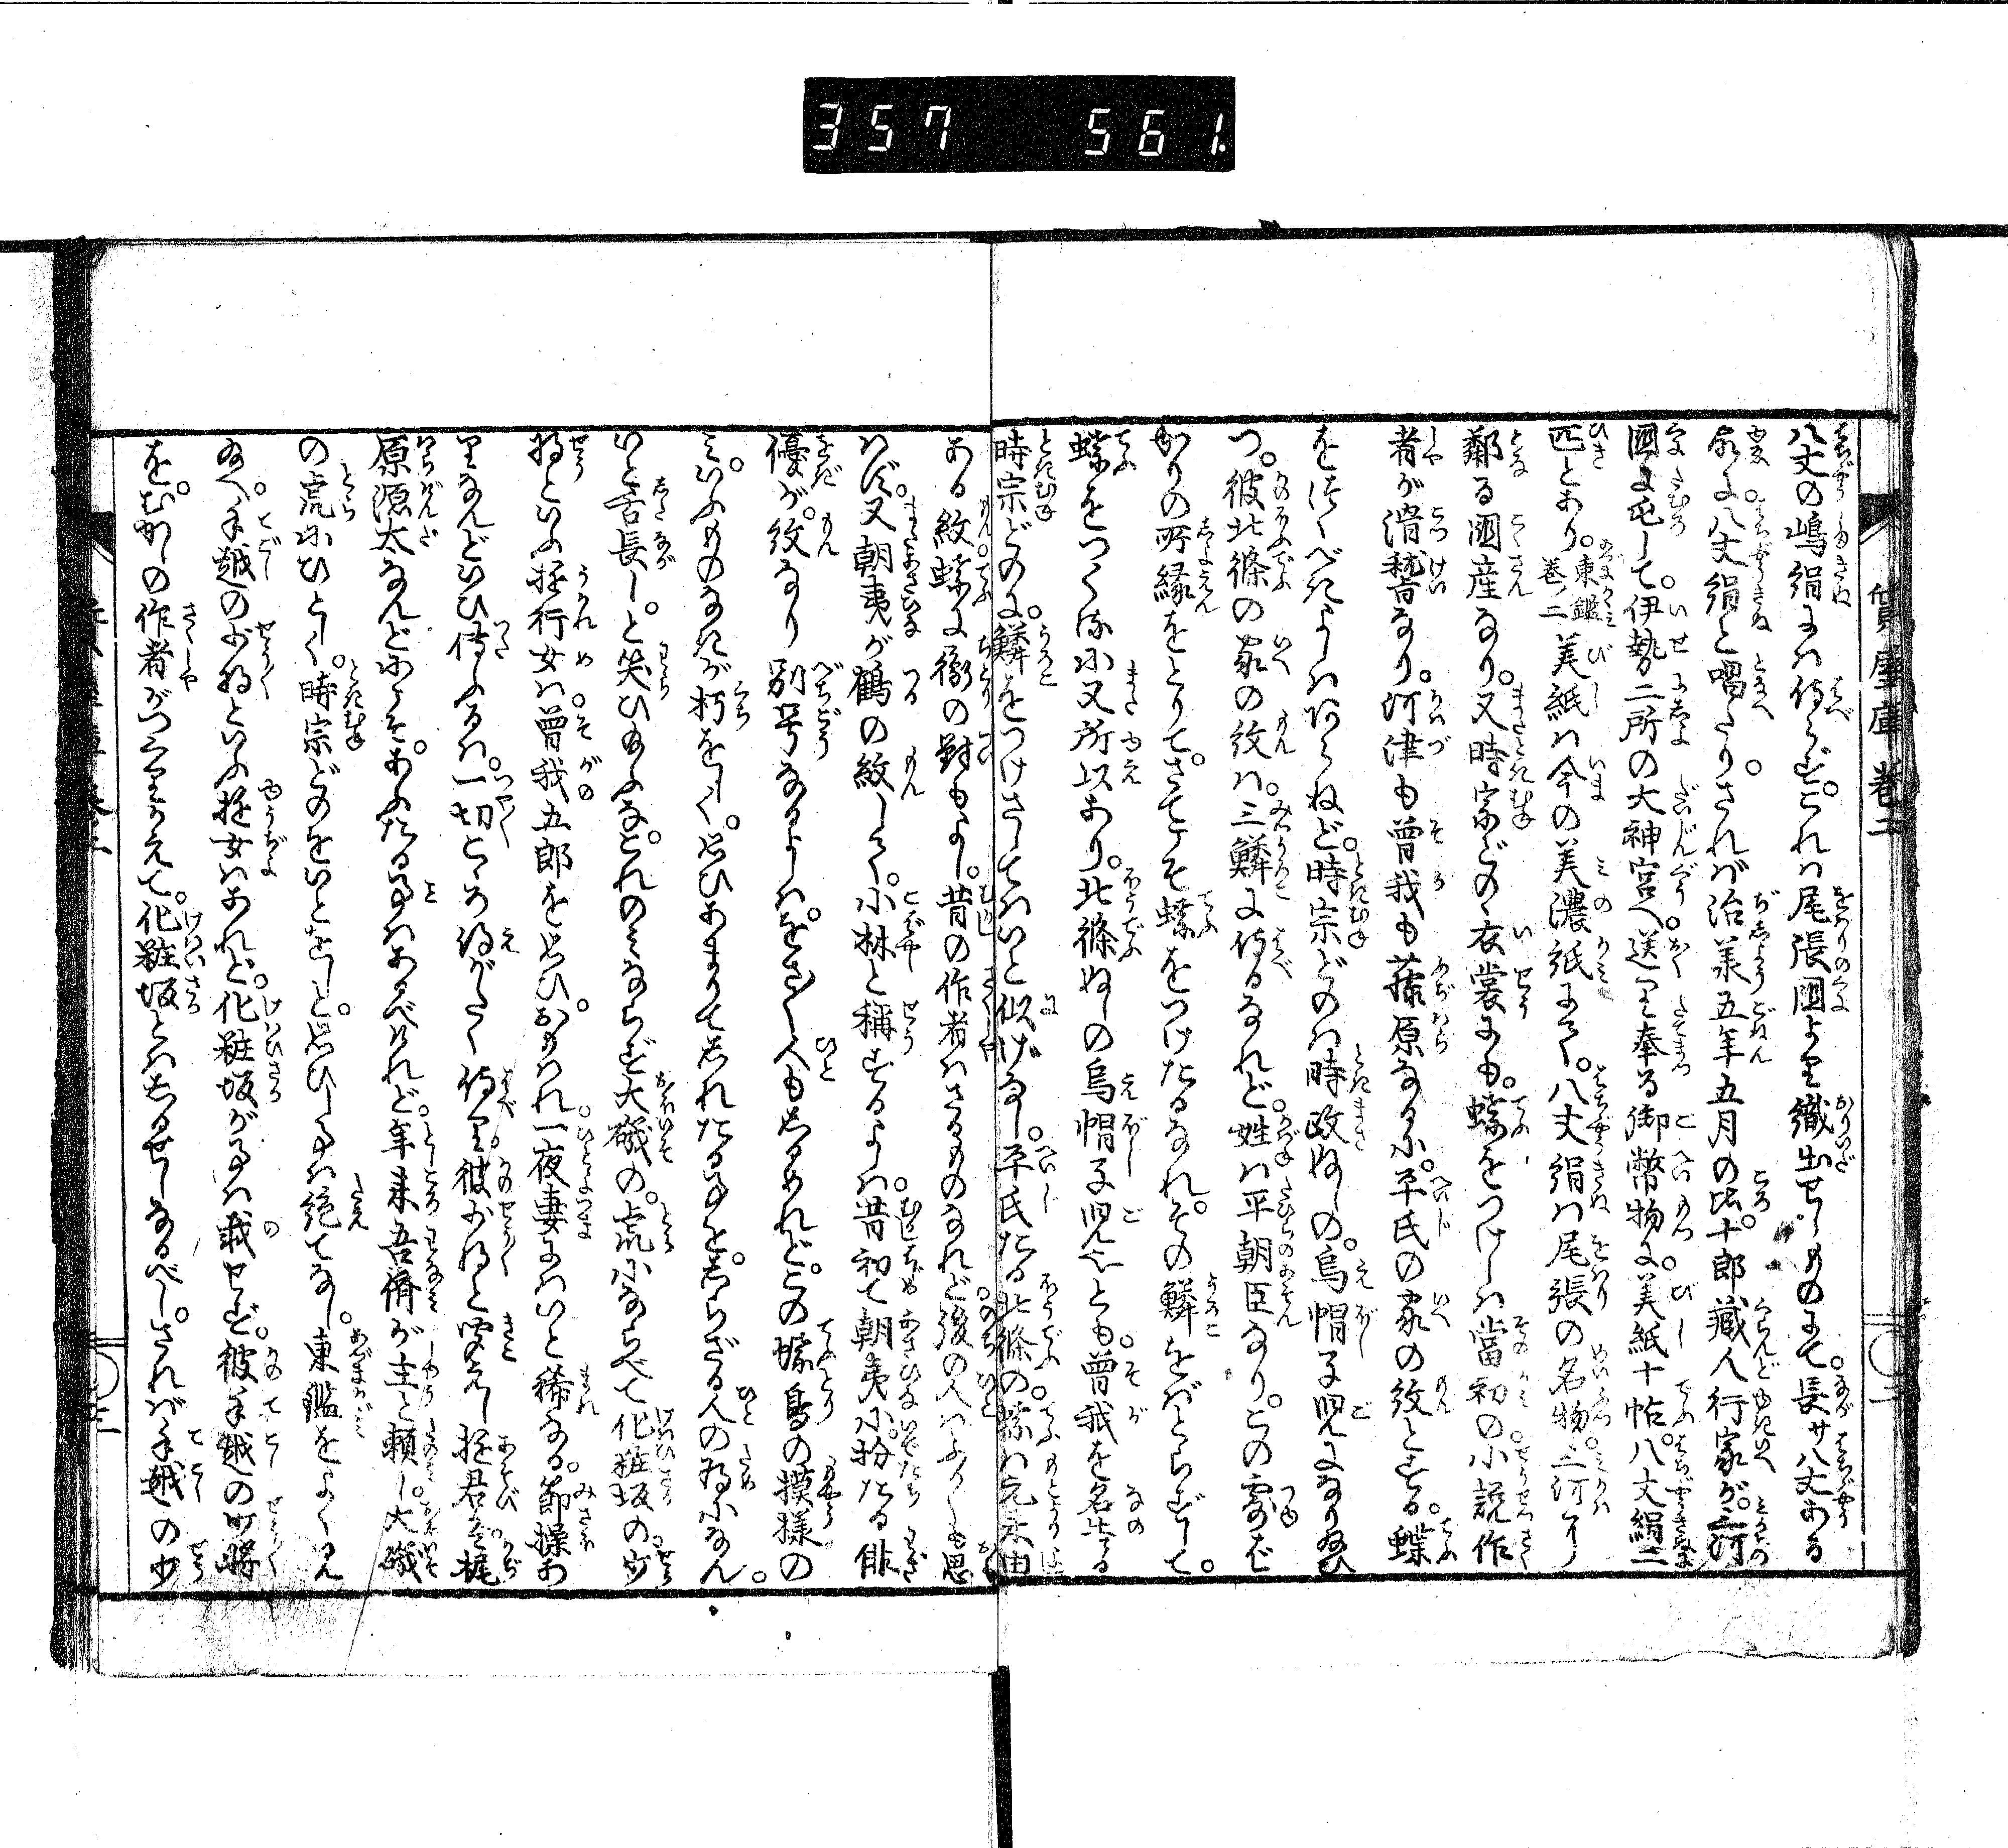 357 561.
質屋庫 巻二
八丈の嶋絹には侍らず。これは尾張國より織出せしものにて。長サ八丈ある
故に八丈絹と唱たり。されば治承五年五月の比。十郎藏人行家が。三河
國に屯して。伊勢二所の大神宮へ。送り奉る御幣物に。美紙十帖。八丈絹二
匹とあり。東鑑巻ノ二美紙は今の美濃紙にて。八丈絹は尾張の名物。三河に
鄰る國産なり。又時宗どのゝ衣裳にも。蝶をつけしは當初の小説作
者が滑稽なり。河津も曽我も藤原なるに。平氏の家の紋とする。蝶
をつくべきよしはあらねど。時宗どのは時政ぬしの。烏帽子児になり給ひ
つ。彼北條の家の紋は。三鱗に侍るなれど。姓は平朝臣なり。この
かりの所縁をとりて。さてこそ蝶をつけたるなれ。その鱗をばとらずして。
蝶をつくるに又所以あり。北條ぬしの烏帽子児とも。曽我を名告る
時宗どのに。鱗をつけさしてはいと似げなし。平氏たる北條の。蝶は元来由
ある紋。蝶に衡の對もよし。昔の作者はさるものなれど。後の人はふかくも思
はず。又朝夷が鶴の紋しく。小林と稱するよしは。昔初て朝夷に扮たる俳
優が。紋なり別号なるよしは。をさ〳〵人もしるめれど。この蝶鳥の摸様の
みいふものなきが朽をしく。思ひあまりて忘れたる事を。しらざる人の為になん。
いと舌長し。と笑ひ給ふな。これのみならず大磯の。虎にならべて化粧坂の少
将といふ遊行女は。曽我五郎を思ひ。かはれ一夜妻にはいと稀なる。節操あ
りなんどいひ傳ふるは。一切とゝろ得がたく侍り。彼少将と聞えし遊君を。梶
原源太なんどにこそ。あふたる事はあるべけれど。年来吾儕が主と頼し。大磯
の虎にひとしく。時宗どのをいとをしと。思ひし事は絶てなし。東鑑をよく見
給へ。手越の少将といふ遊女はあれど。化粧坂が事は載せず。彼手越の少將
を。むかしの作者がつくりかえて。化粧坂とはしるせしなるべし。されば手越の少